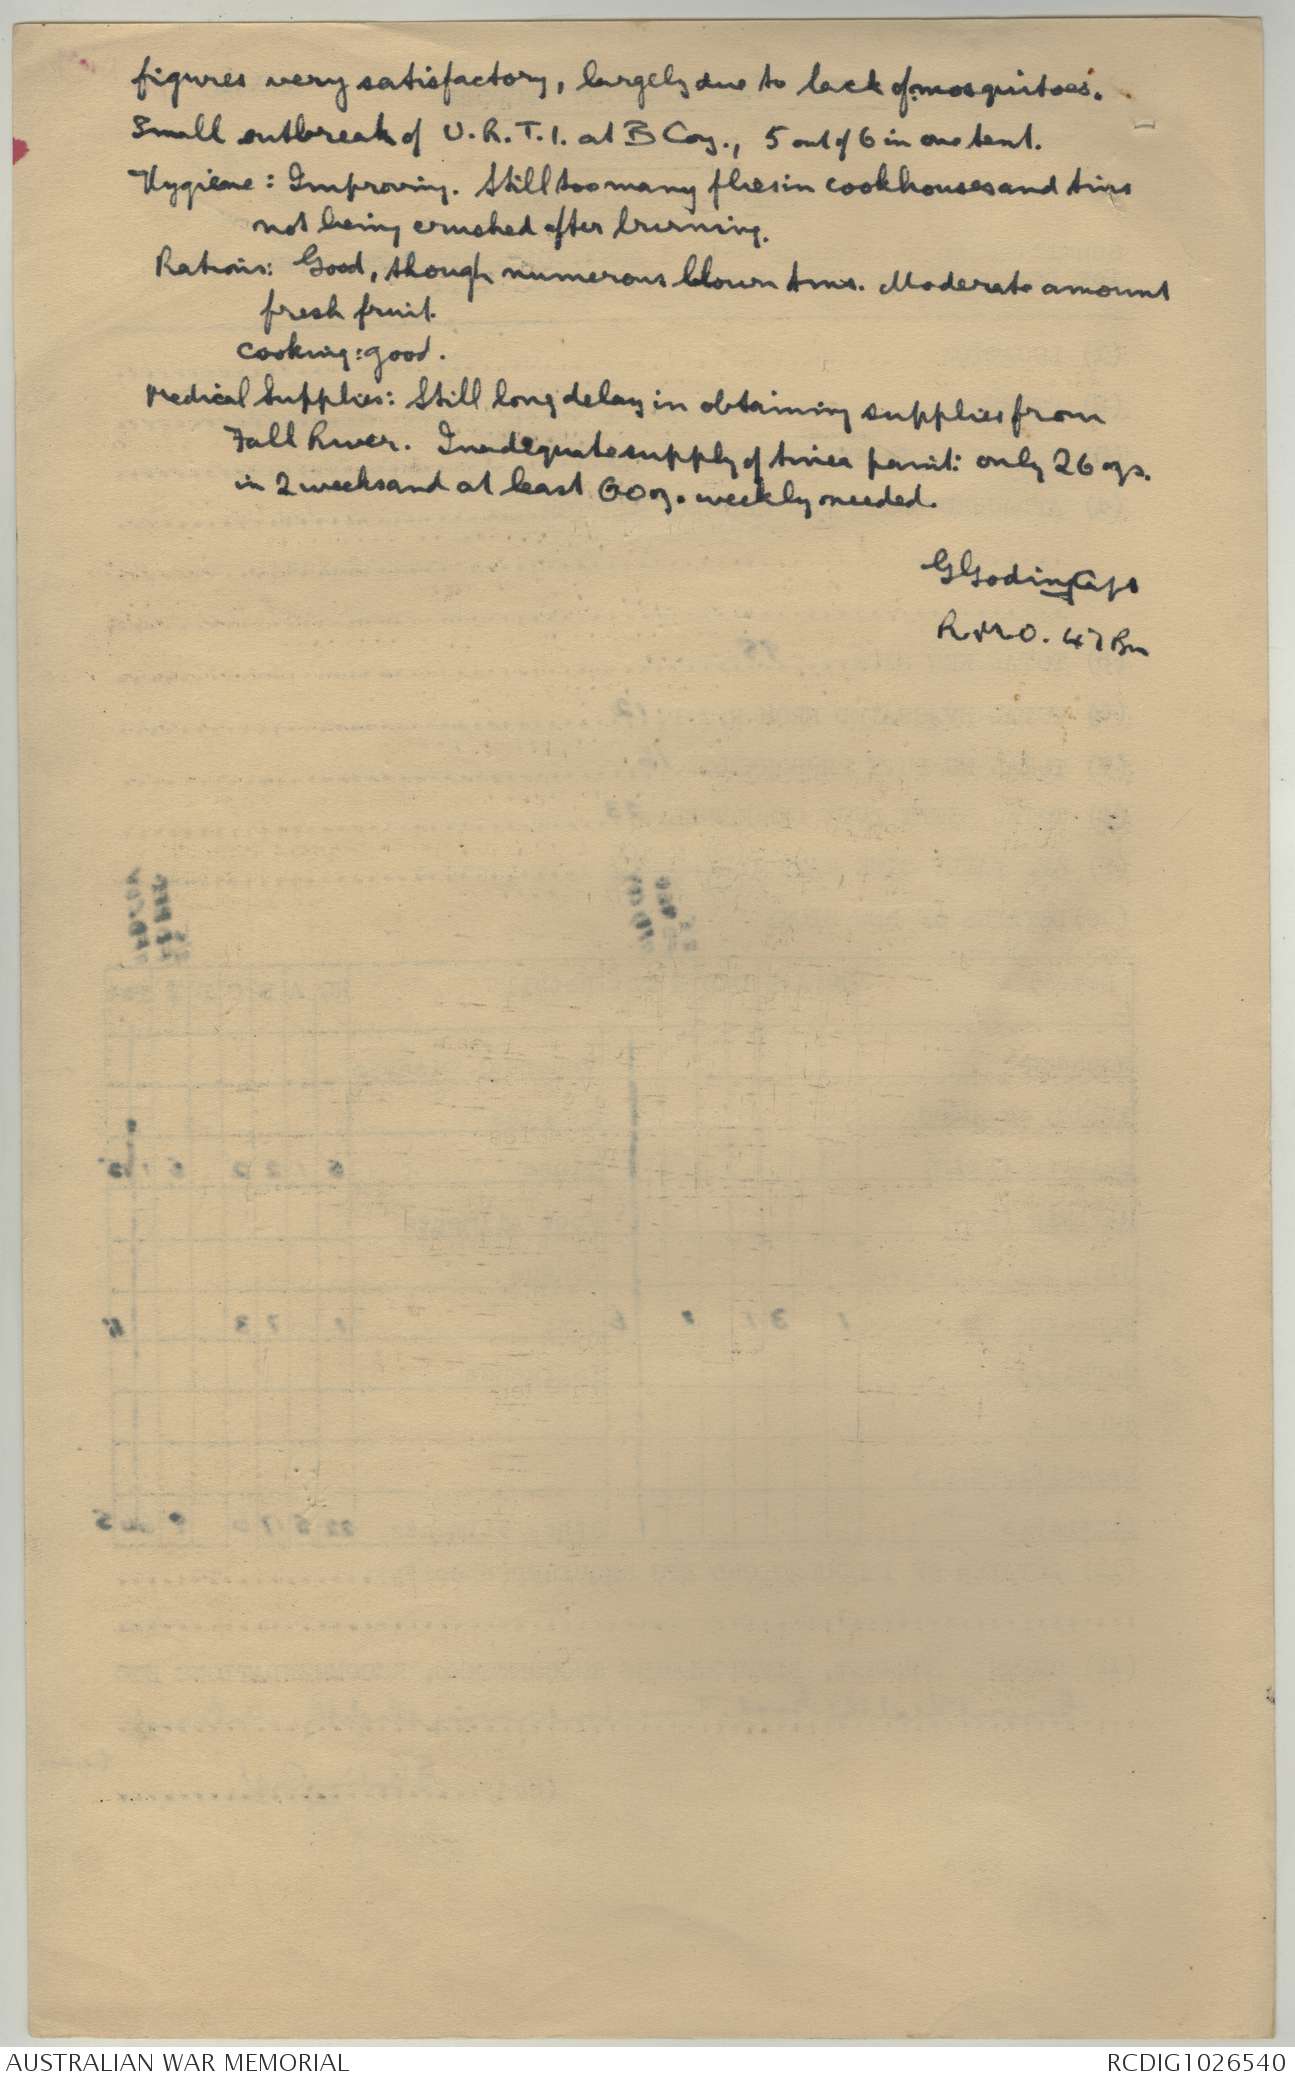 figures very satisfactory, largely due to lack of mosquitoes.
Small outbreak of U.R.T.I. at B Coy., 5 out of 6 in one tent.
Hygiene: Improving. Still too many flies in cookhouses and tins
not being crushed after burning.
Rations: Good, though numerous blown tins. Moderate amount
fresh fruit.
Cooking: good.
Medical Supplies: Still long delay in obtaining supplies from
Fall River. Inadequate supply of tinea paint: only 26 ozs.
in 2 weeks and at least 60 oz. weekly needed.
G Goding Capt
R.M.O. 47 Bn
AUSTRALIAN WAR MEMORIAL
RCDIG1026540